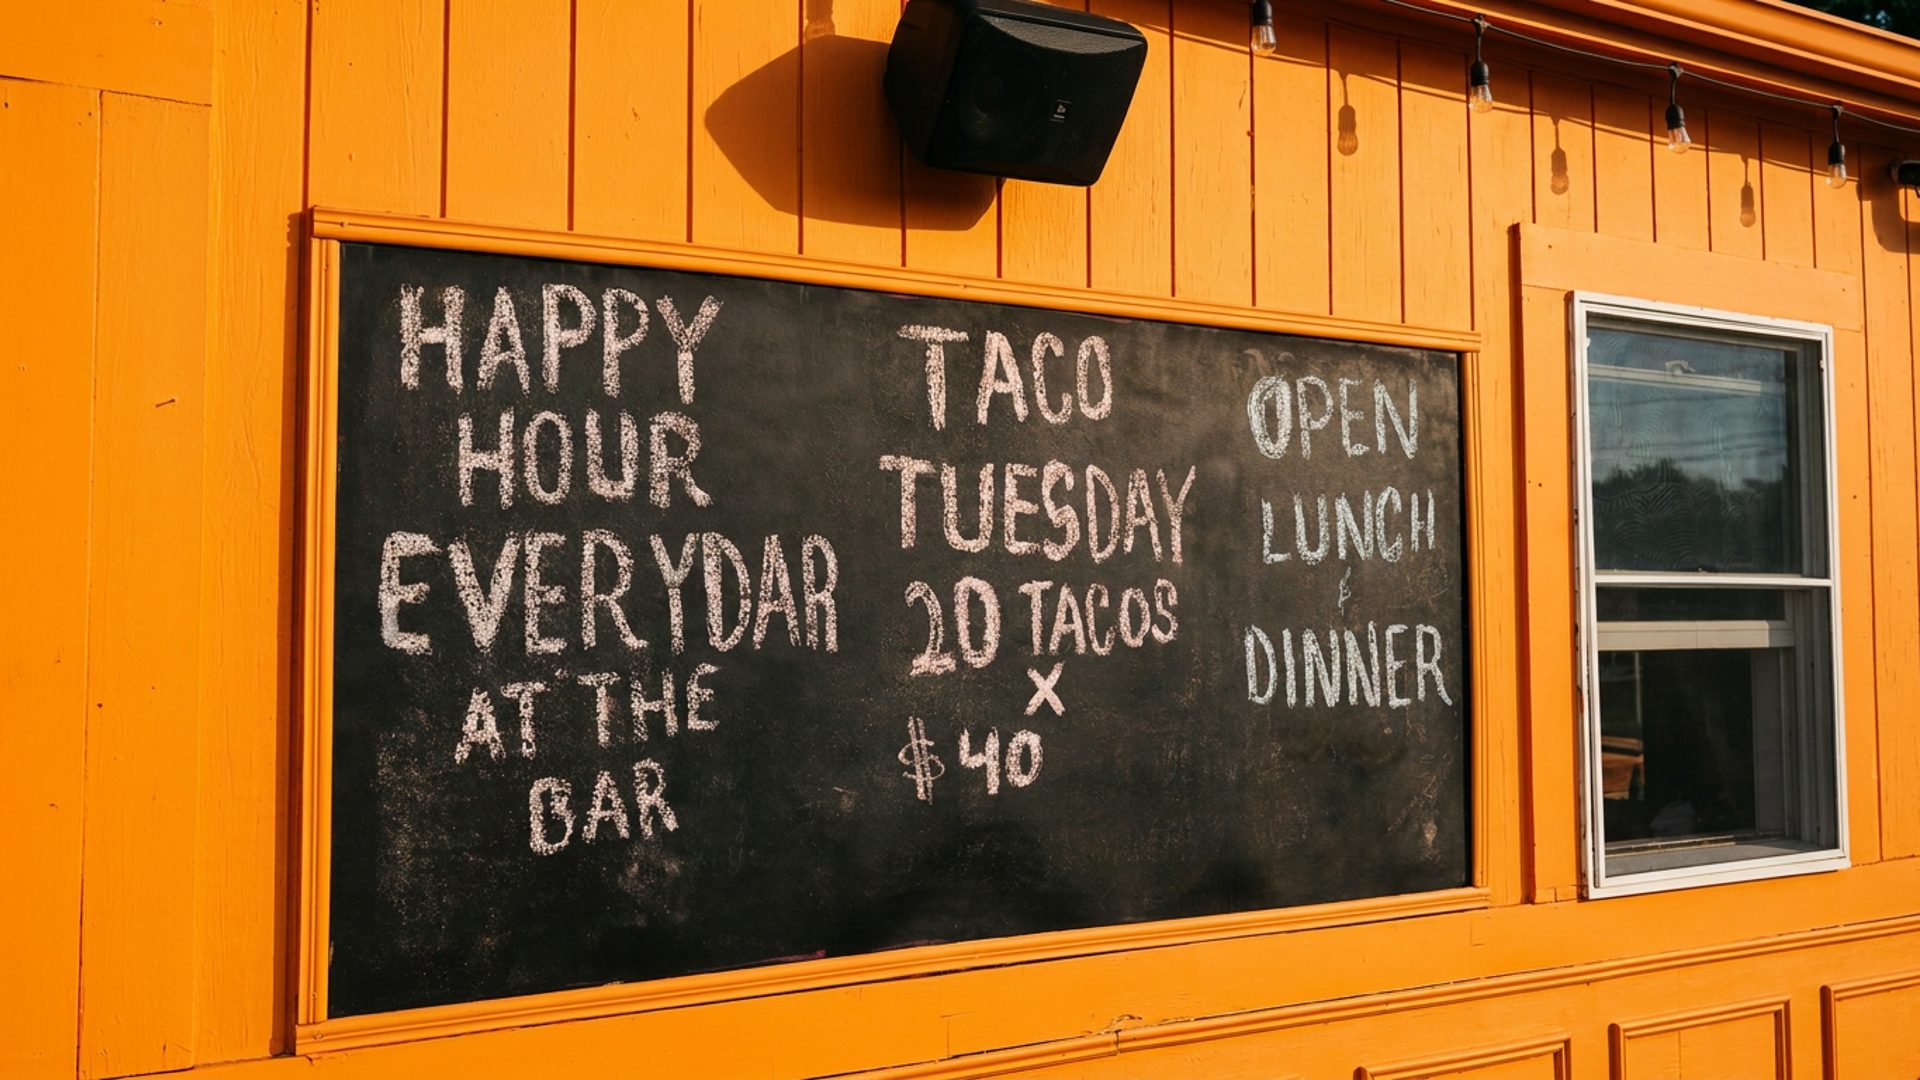 HAPPY
HOUR
EVERYDAR
AT THE
BAR
TACO
TUESDAY
20 TACOS
X
$40
OPEN
LUNCH
&
DINNER